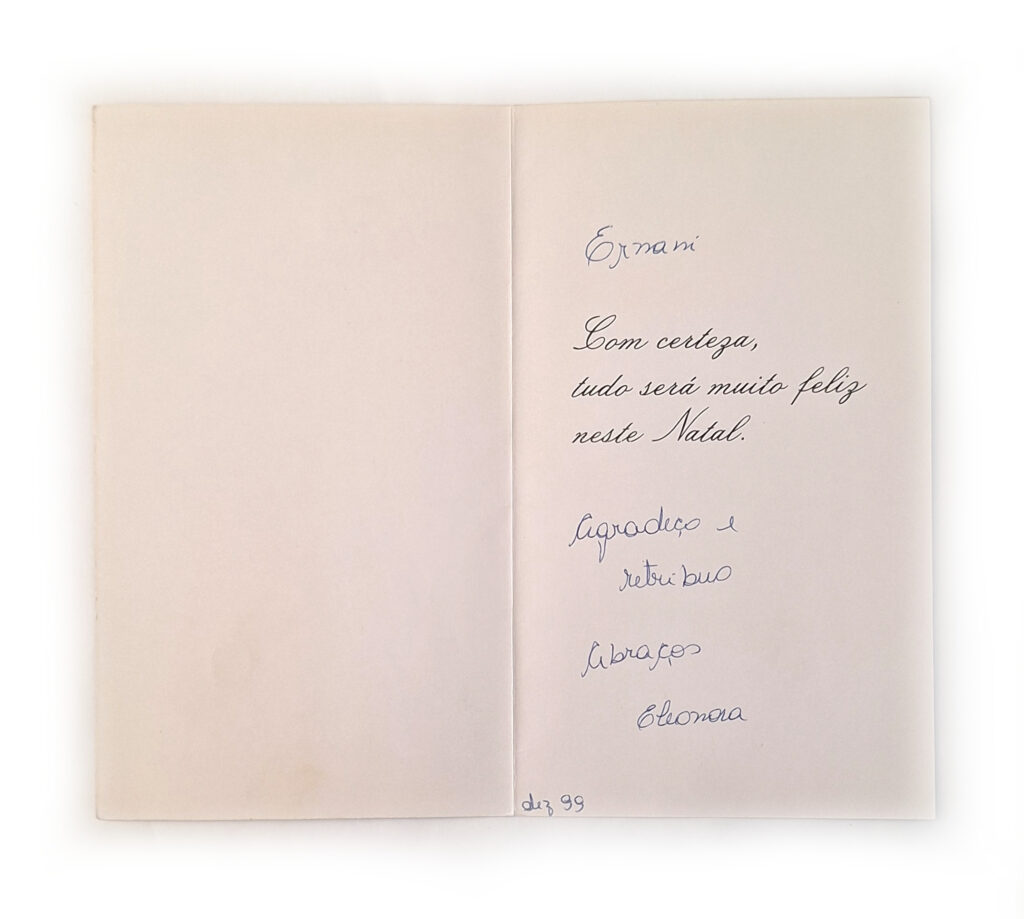 Ernani
Com certeza,
tudo será muito feliz
neste Natal.
Agradeço e
retribuo
Abraços
Eleonora
dez 99